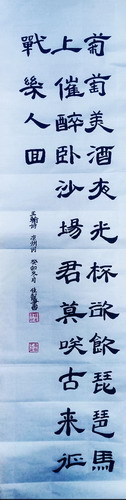 葡萄美酒夜光杯欲飲琵琶馬
上催醉卧沙場君莫咲古来征
戰幾人回
王翰詩 涼州詞 癸卯冬月